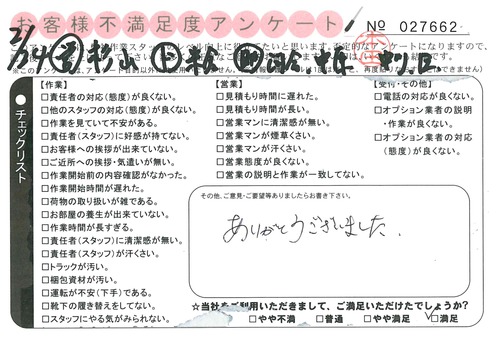 お客様不満足度アンケート
No 027662
【作業】
□責任者の対応(態度)が良くない。
□他のスタッフの対応(態度)が良くない。
□作業を見ていて不安がある。
□責任者(スタッフ)に好感が持てない。
□お客様への挨拶が出来ていない。
□ご近所への挨拶・気遣いが無い。
□作業開始前の内容確認がなかった。
□作業開始時間が遅れた。
□荷物の取り扱いが雑である。
□お部屋の養生が出来ていない。
□作業時間が長すぎる。
□責任者(スタッフ)に清潔感が無い。
□責任者(スタッフ)が汗くさい。
□トラックが汚い。
□梱包資材が汚い。
□運転が不安(下手)である。
□靴下の履き替えをしてない。
□スタッフにやる気がみられない。
【営業】
□見積もり時間に遅れた。
□見積もり時間が長い。
□営業マンに清潔感が無い。
□営業マンが煙草くさい。
□営業マンが汗くさい。
□営業態度が良くない。
□営業の説明と作業が一致してない。
【受付・その他】
□電話の対応が良くない。
□オプション業者の説明
・作業が良くない。
□オプション業者の対応
(態度)が良くない。
チェックリスト
その他、ご意見・ご要望等ありましたらお書き下さい。
ありがとうございました.
☆当社をご利用いただきまして、ご満足いただけたでしょうか?
□やや不満 □普通 □やや満足 ☑満足